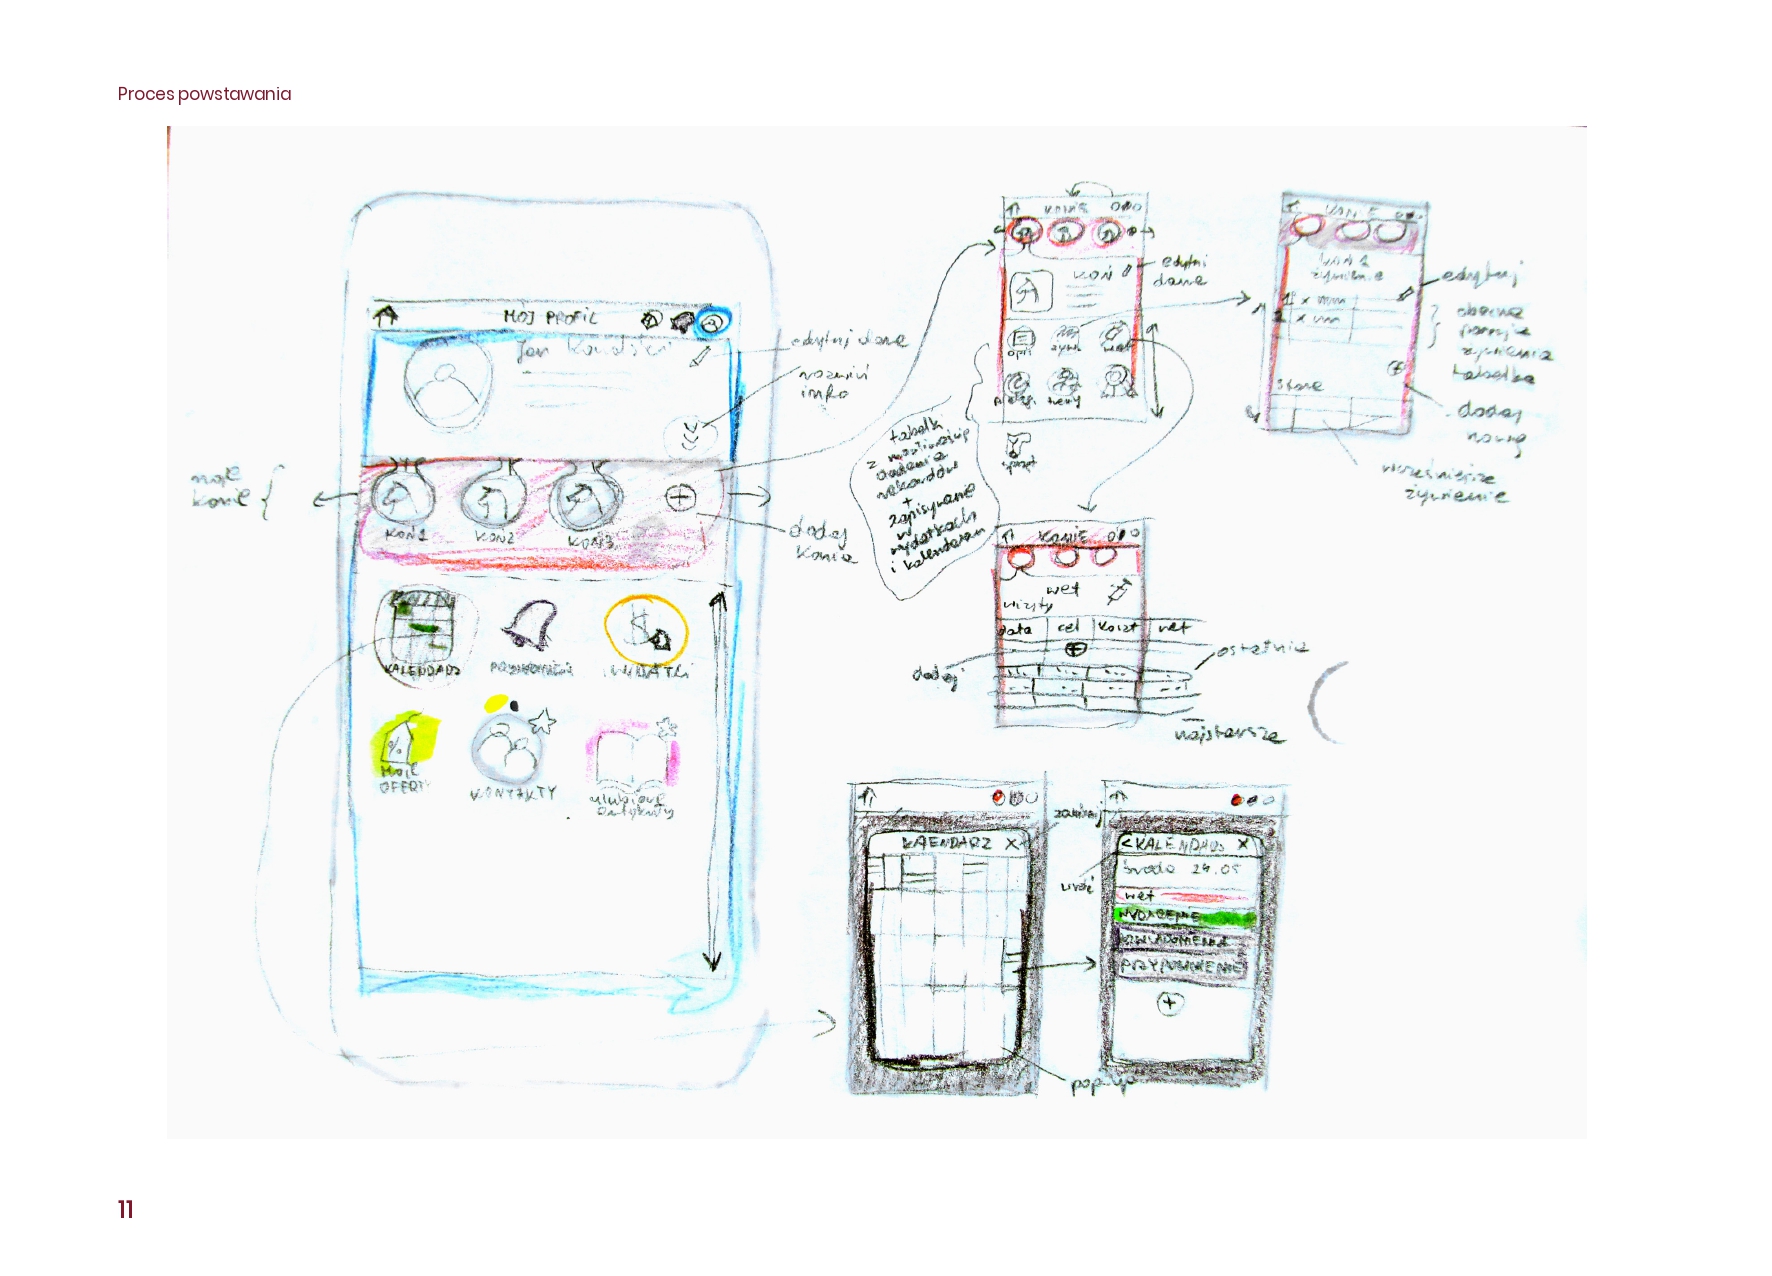 Proces powstawania
MÓJ PROFIL
Jan Kowalski
edytuj dane
rozwiń
info
moje
konie
KOŃ1
KOŃ2
KOŃ3
dodaj
konia
KALENDARZ
WYDATKI
MOJE
OFERTY
KONTAKTY
ulubione
artykuły
KONIE
KOŃ
edytuj
dane
opis
żyw.
wet
treny
sprzęt
tabelki
z możliwością
dodania
rekordów
+
zapisywane
w
wydatkach
i kalendarzu
KONIE
koń 1
żywienie
1 x mm
edytuj
obecne
porcje
żywienia
tabelka
stare
dodaj
nową
wcześniejsze
żywienie
KONIE
wet
wizyty
data cel koszt wet
dodaj
ostatnie
najstarsze
KALENDARZ X
zamknij
wróć
pop-up
< KALENDARZ X
środa 24.05
wet
WYDARZENIE
POWIADOMIENIA
PRZYPOMNIENIE
11